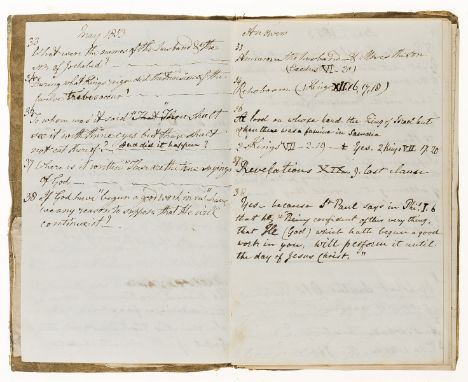 May 1851
33
What were the names of the husband & the
son of Jochebed?
34
During what Kings reign did the division of the
twelve tribes occur?
36
To whom was it said "Thou shalt
see it with thine eyes but thou shalt
not eat thereof"? And did it happen?
37 Where is it written "These are the true sayings
of God
38 If God have "begun a good work in us" have
we any reason to suppose that He will
continue it?
Answers
33
Amram the husband & Moses the son
(Exodus VI - 20)
34
Rehoboam (1 Kings XII. 16, 17, 18)
36
A lord on whose hand the King of Israel leant
when there was a famine in Samaria
2 Kings VII - 2. 19 - & Yes. 2 Kings VII 17. 20
37
Revelations XIX. 9. last clause
38
Yes because St Paul says in Phi: I. 6
that he, "Being confident of this very thing,
that He (God) which hath begun a good
work in you, will perform it until
the day of Jesus Christ."